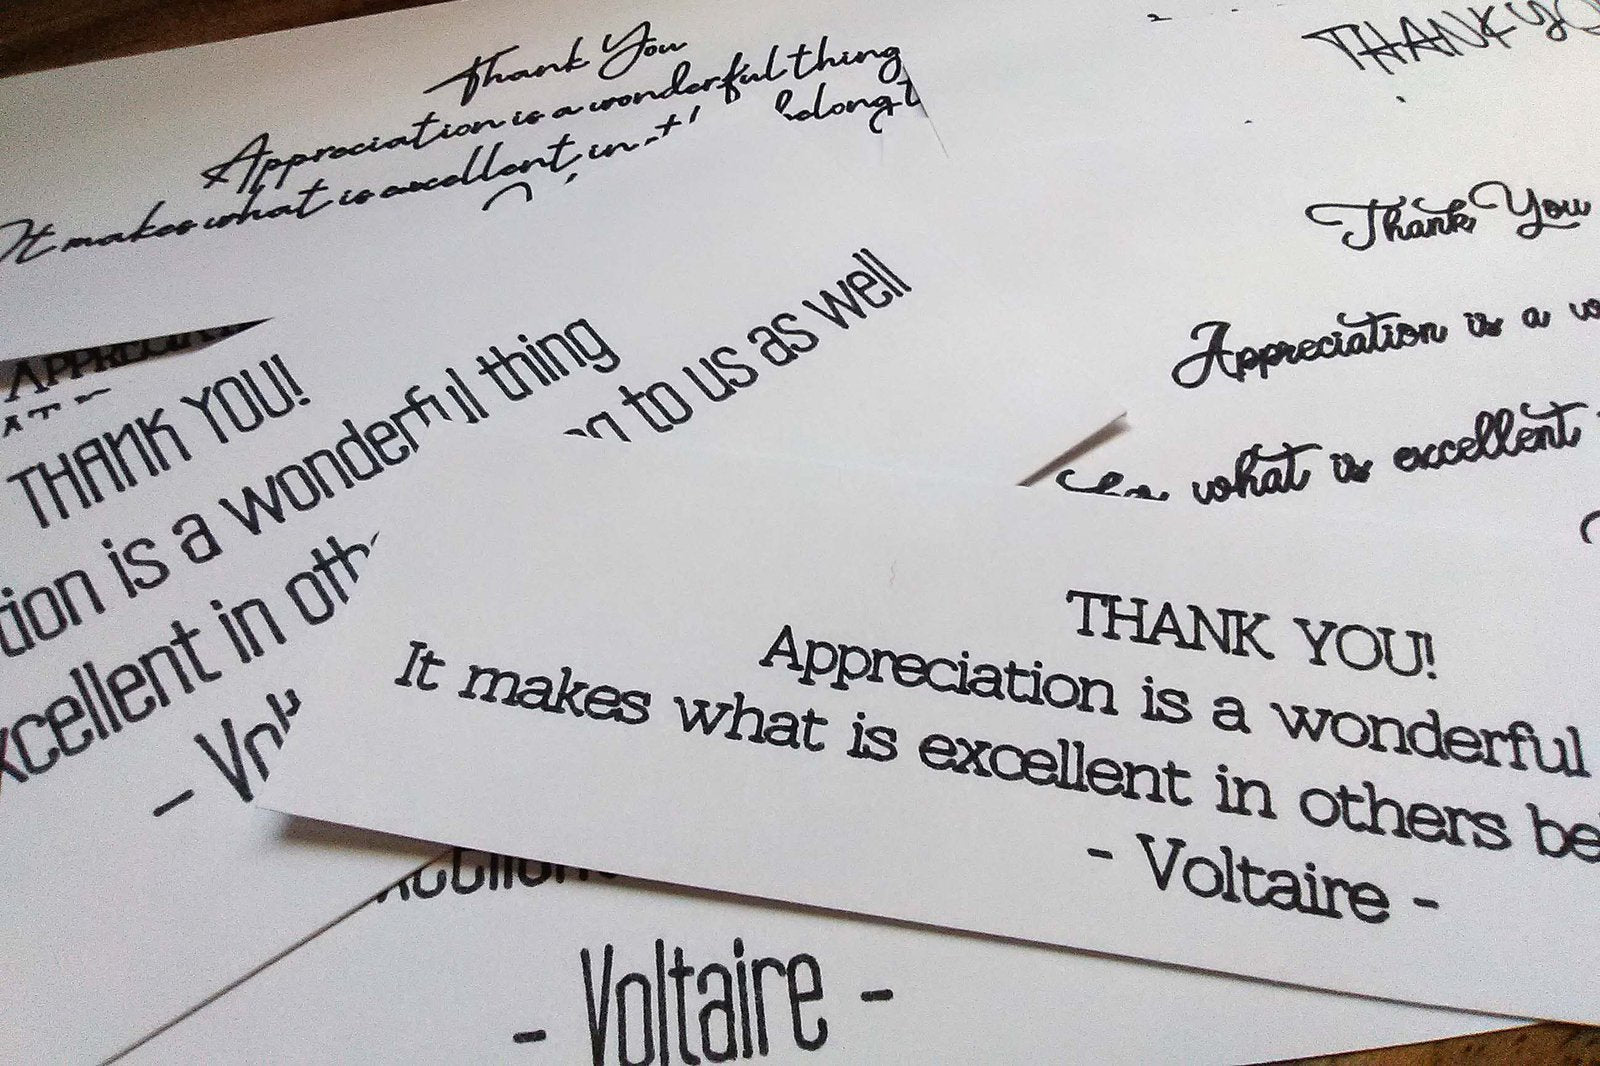 Thank You
Appreciation is a wonderful thing
It makes what is excellent in
belong t
THANK YO
Thank You
Appreciation is a
what is excellent
APPRECIAT
THANK YOU!
tion is a wonderful thing
to us as well
xcellent in oth
- Vol
THANK YOU!
Appreciation is a wonderful
It makes what is excellent in others be
- Voltaire -
- Voltaire -